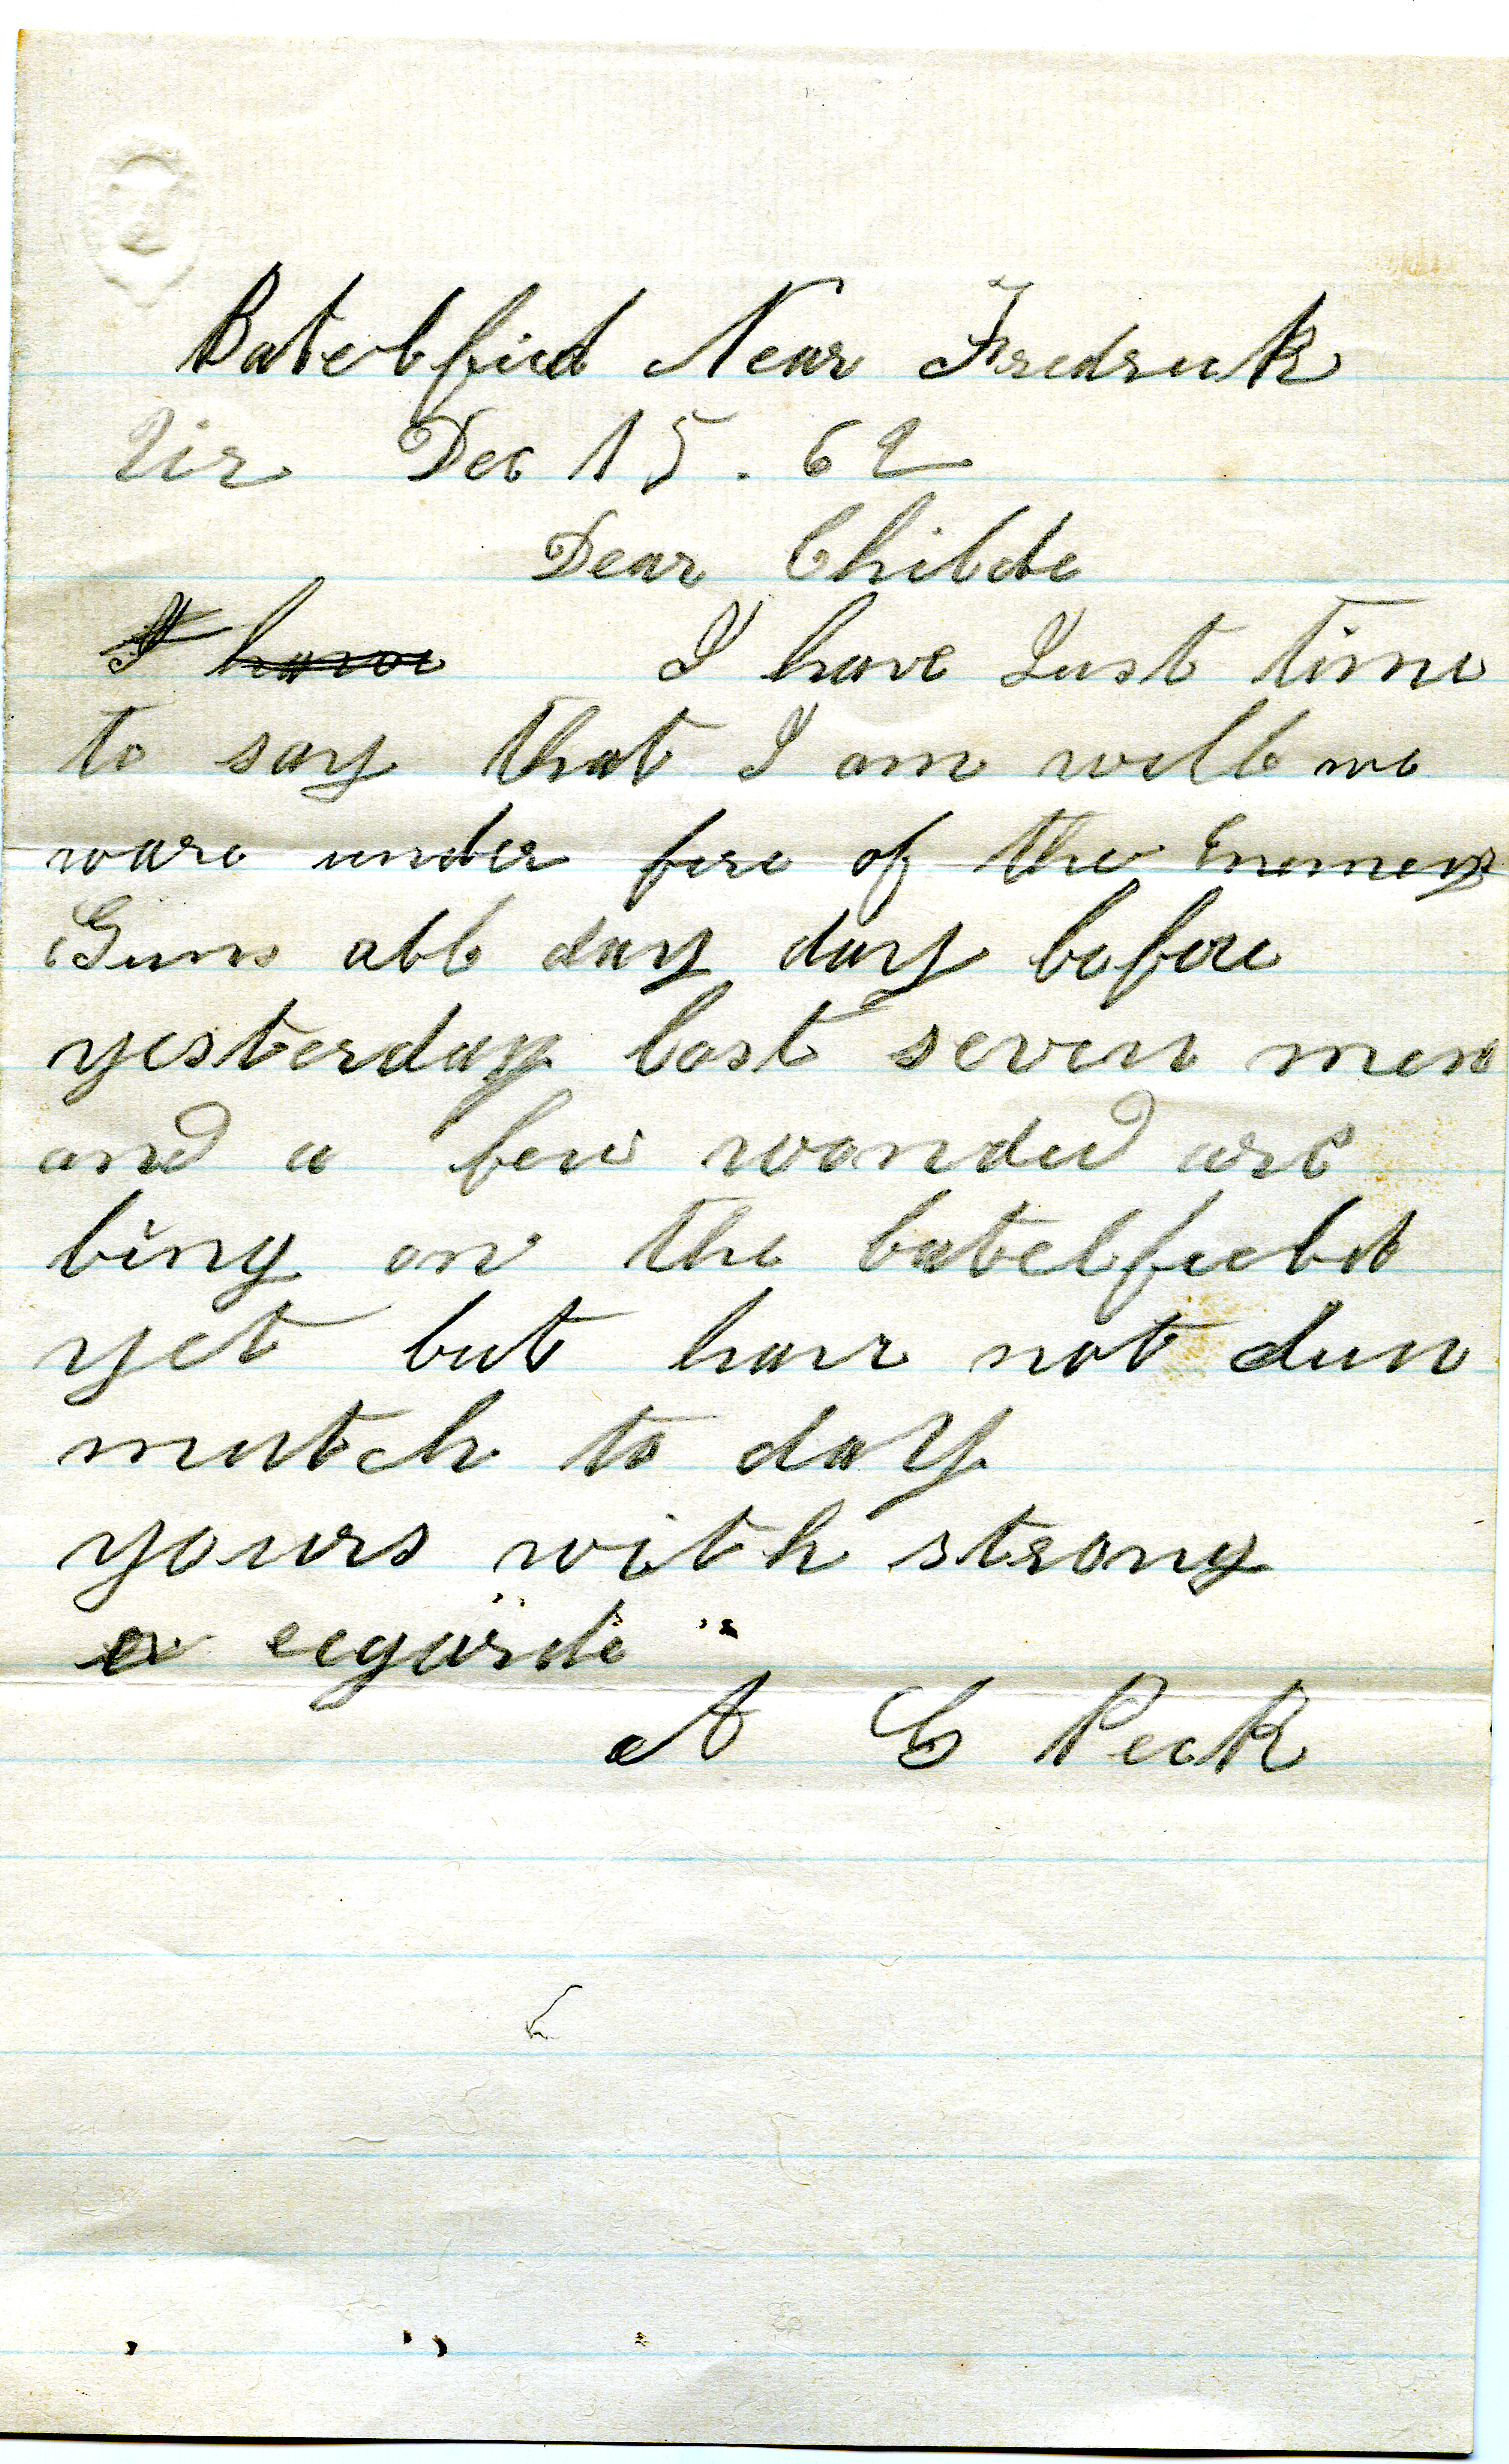 Batelfied Near Fredrick
Vir Dec 15. 62
Dear Childe
I have I have Just time
to say that I am well we
ware under fire of the Enemey
Guns all day day before
yesterday lost seven men
and a few wonded are
ling on the batelfield
yet but hav not dun
mutch to day
yours with strong
regarde
A C Peck